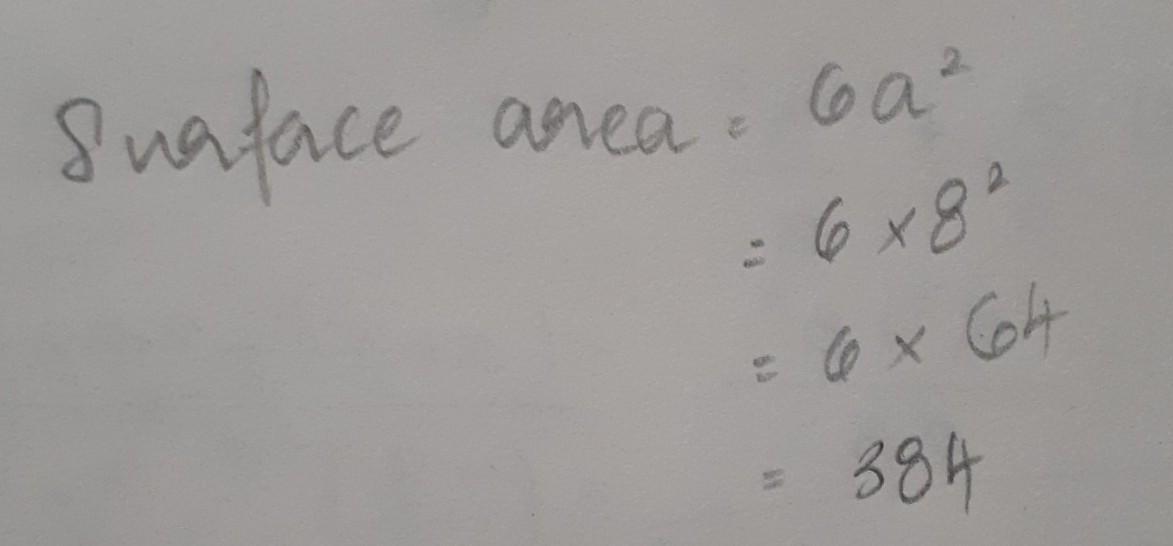 Surface area = 6a²
= 6 × 8²
= 6 × 64
= 384